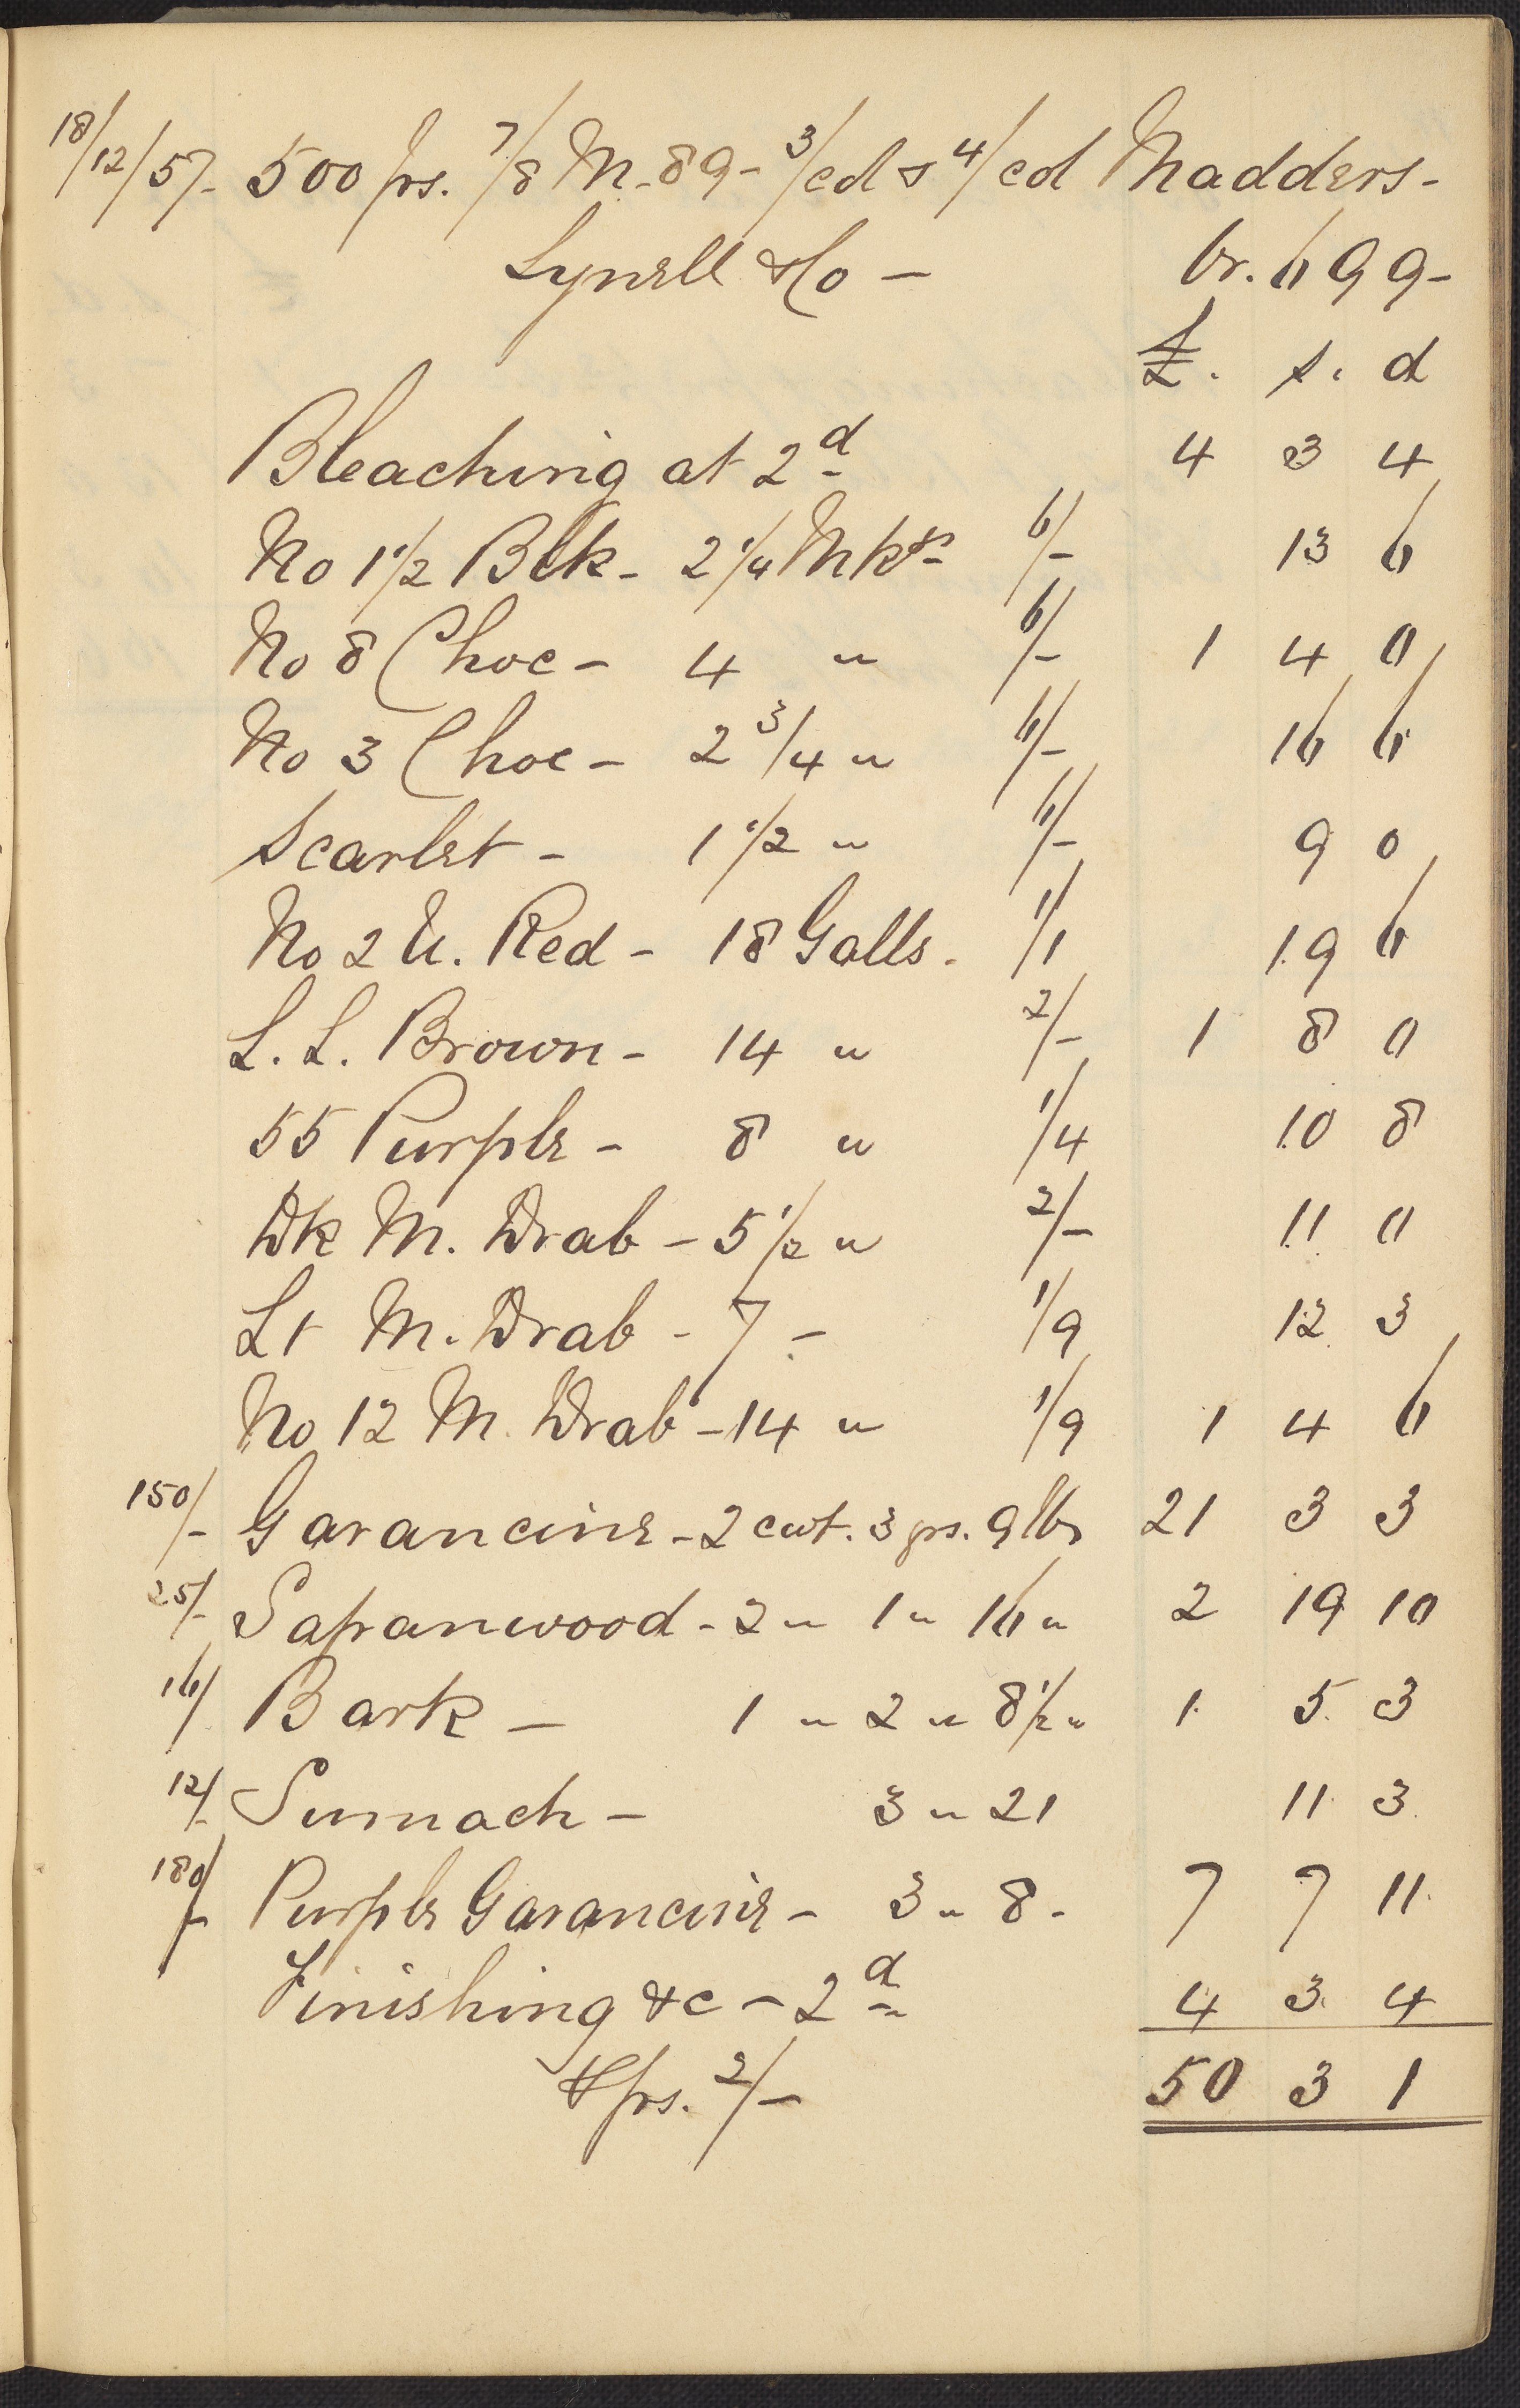 18/12/57- 500 ps. 7/8 M. 89- 3/cd & 4/cd Madders-
Lynell & Co - br. 699-
£. s. d
Bleaching at 2d 4 3 4
No 1 1/2 Blk- 2 1/4 Mkts 6/- 13 6
No 8 Choc- 4 " 6/- 1 4 0
No 3 Choc- 2 3/4 " 6/- 16 6
Scarlet- 1 1/2 " 6/- 9 0
No 2 U. Red- 18 Galls. 1/1 19 6
L. L. Brown- 14 " 2/- 1 8 0
55 Purple- 8 " 1/4 10 8
Dk M. Drab- 5 1/2 " 2/- 11 0
Lt M. Drab- 7 - 1/9 12 3
No 12 M. Drab- 14 " 1/9 1 4 6
150/- Garancine- 2 cwt. 3 qrs. 9 lbs 21 3 3
25/- Sapanwood- 2 " 1 " 16 " 2 19 10
16/ Bark- 1 " 2 " 8 1/2 " 1 5 3
12/- Sumach- 3 " 21 11 3
180/- Purple Garancine- 3 " 8- 7 7 11
Finishing &c- 2d 4 3 4
& ps. 2/- 50 3 1